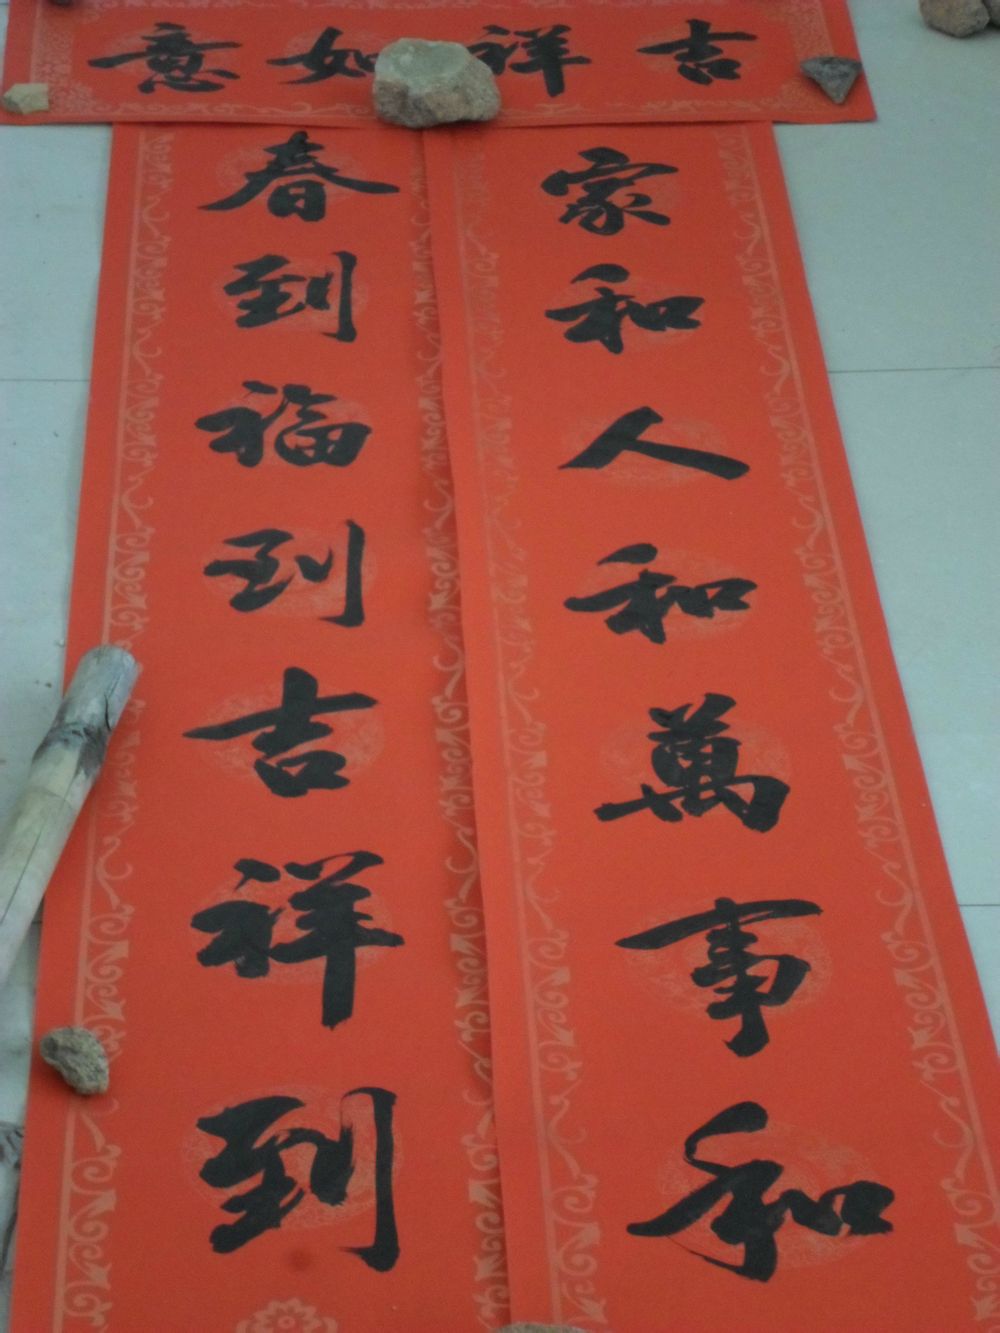 吉祥如意
家和人和萬事和
春到福到吉祥到